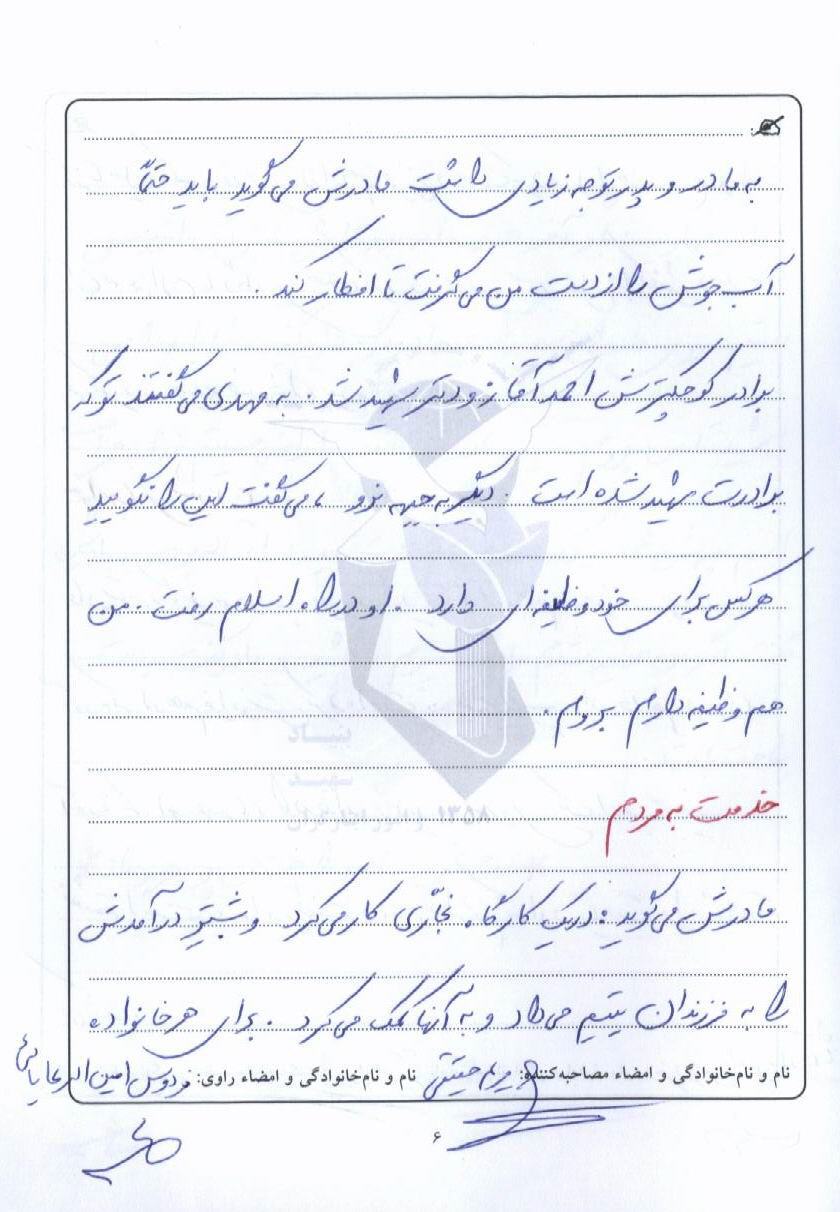 به مادر و پدر توجه زیادی داشت مادرش می‌گوید باید حتماً
آب جوش را از دست من می‌گرفت تا افطار کند.
برادر کوچکترش احمد آقا زودتر شهید شد. به مهدی می‌گفتند تو که
برادرت شهید شده است. دیگر به جبهه نرو، می‌گفت این را نگویید
هر کس برای خود وظیفه‌ای دارد. او در راه اسلام رفت. من
هم وظیفه دارم بروم.
خدمت به مردم
مادرش می‌گوید: در یک کارگاه نجّاری کار می‌کرد و بیشتر درآمدش
را به فرزندان یتیم می‌داد و به آنها کمک می‌کرد. برای هر خانواده
نام و نام‌خانوادگی و امضاء مصاحبه‌کننده: مریم حقیقی نام و نام‌خانوادگی و امضاء راوی: فردوس امین الرعایائی
۶
بنیاد
شهید
۱۳۵۸